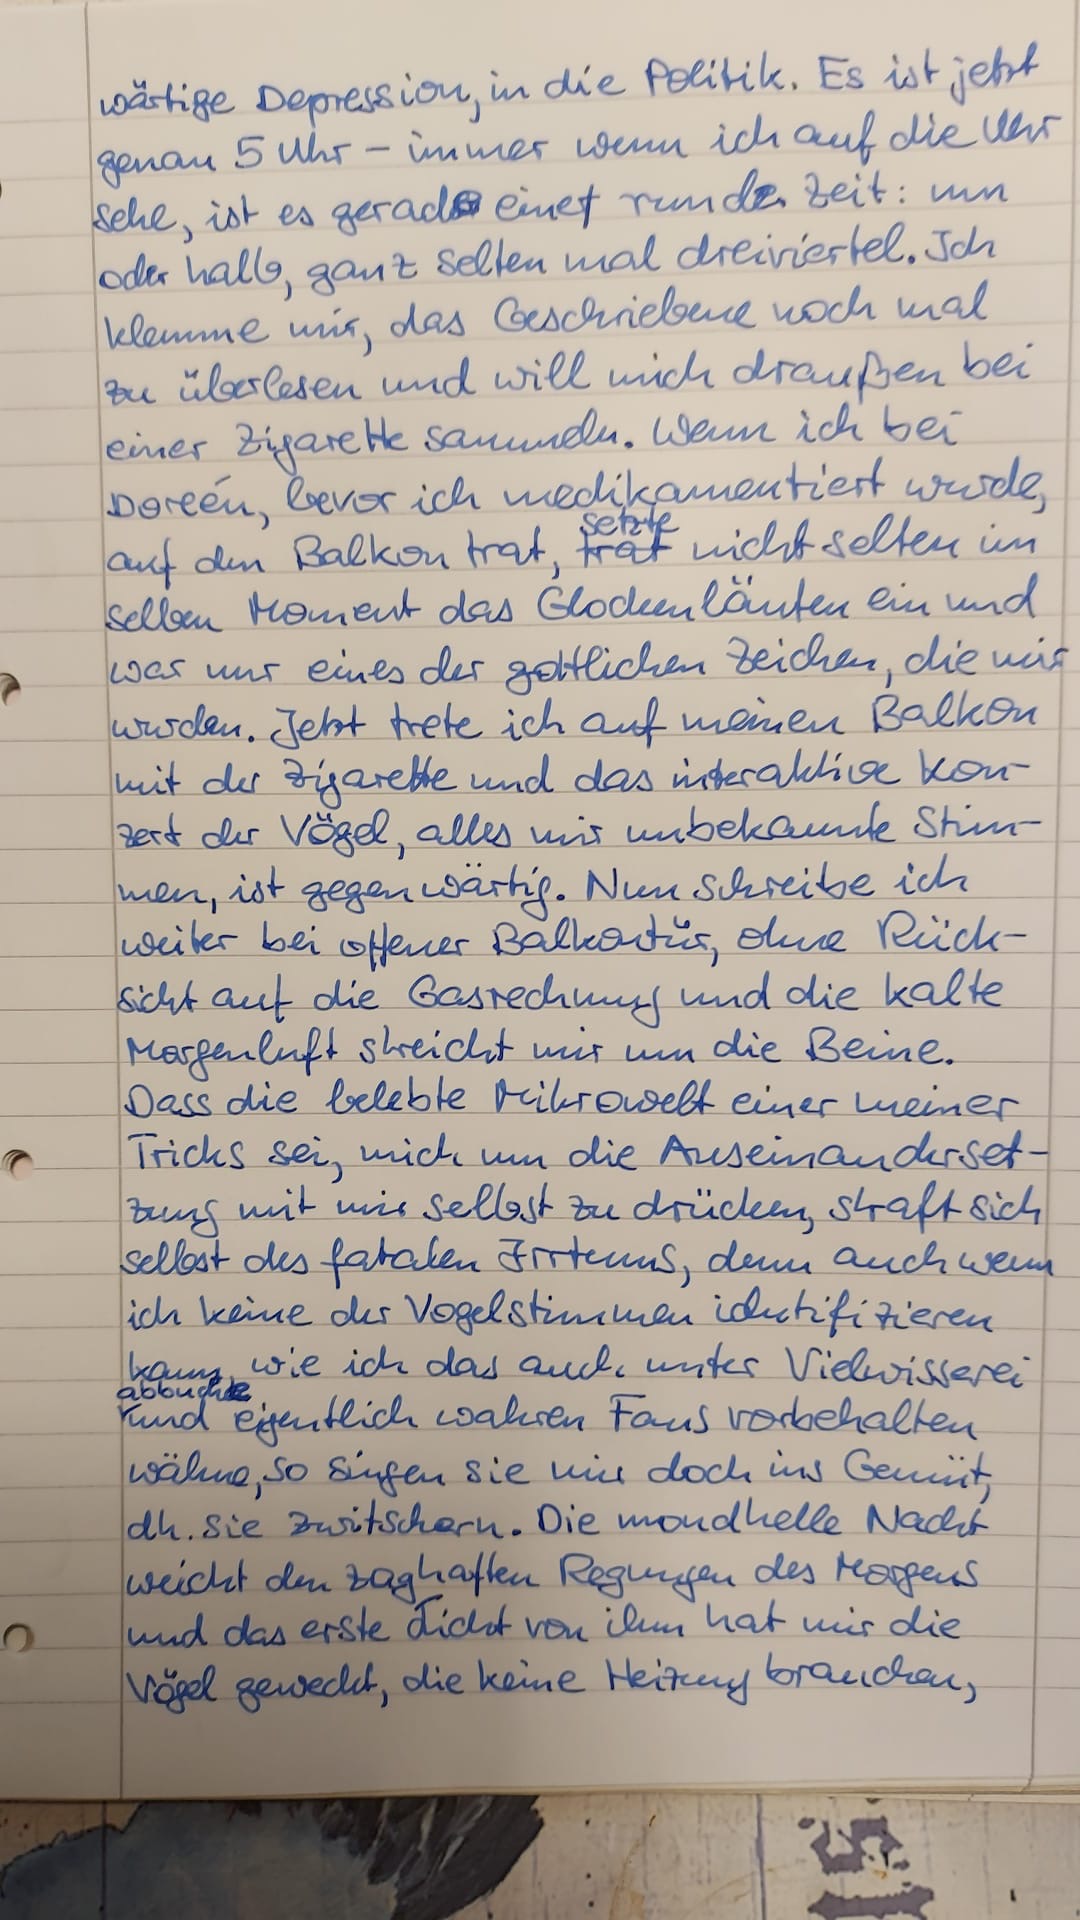 wärtige Depression, in die Politik. Es ist jetzt
genau 5 Uhr – immer wenn ich auf die Uhr
sehe, ist es gerade eine runde Zeit: um
oder halb, ganz selten mal dreiviertel. Ich
klemme mir, das Geschriebene noch mal
zu überlesen und will mich draußen bei
einer Zigarette sammeln. Wenn ich bei
Doreén, bevor ich medikamentiert wurde,
setzte
auf den Balkon trat, trat nicht selten im
selben Moment das Glockenläuten ein und
war nur eines der göttlichen Zeichen, die mir
wurden. Jetzt trete ich auf meinen Balkon
mit der Zigarette und das interaktive Kon-
zert der Vögel, alles mir unbekannte Stim-
men, ist gegenwärtig. Nun schreibe ich
weiter bei offener Balkontür, ohne Rück-
sicht auf die Gasrechnung und die kalte
Morgenluft streicht mir um die Beine.
Dass die belebte Mikrowelt einer meiner
Tricks sei, mich um die Auseinanderset-
zung mit mir selbst zu drücken, straft sich
selbst des fatalen Irrtums, denn auch wenn
ich keine der Vogelstimmen identifizieren
kann, wie ich das auch unter Vielwisserei
abbuche
und eigentlich wahren Fans vorbehalten
wähne, so singen sie mir doch ins Gemüt,
dh. sie zwitschern. Die mondhelle Nacht
weicht den zaghaften Regungen des Morgens
und das erste Licht von ihm hat mir die
Vögel geweckt, die keine Heizung brauchen,
15